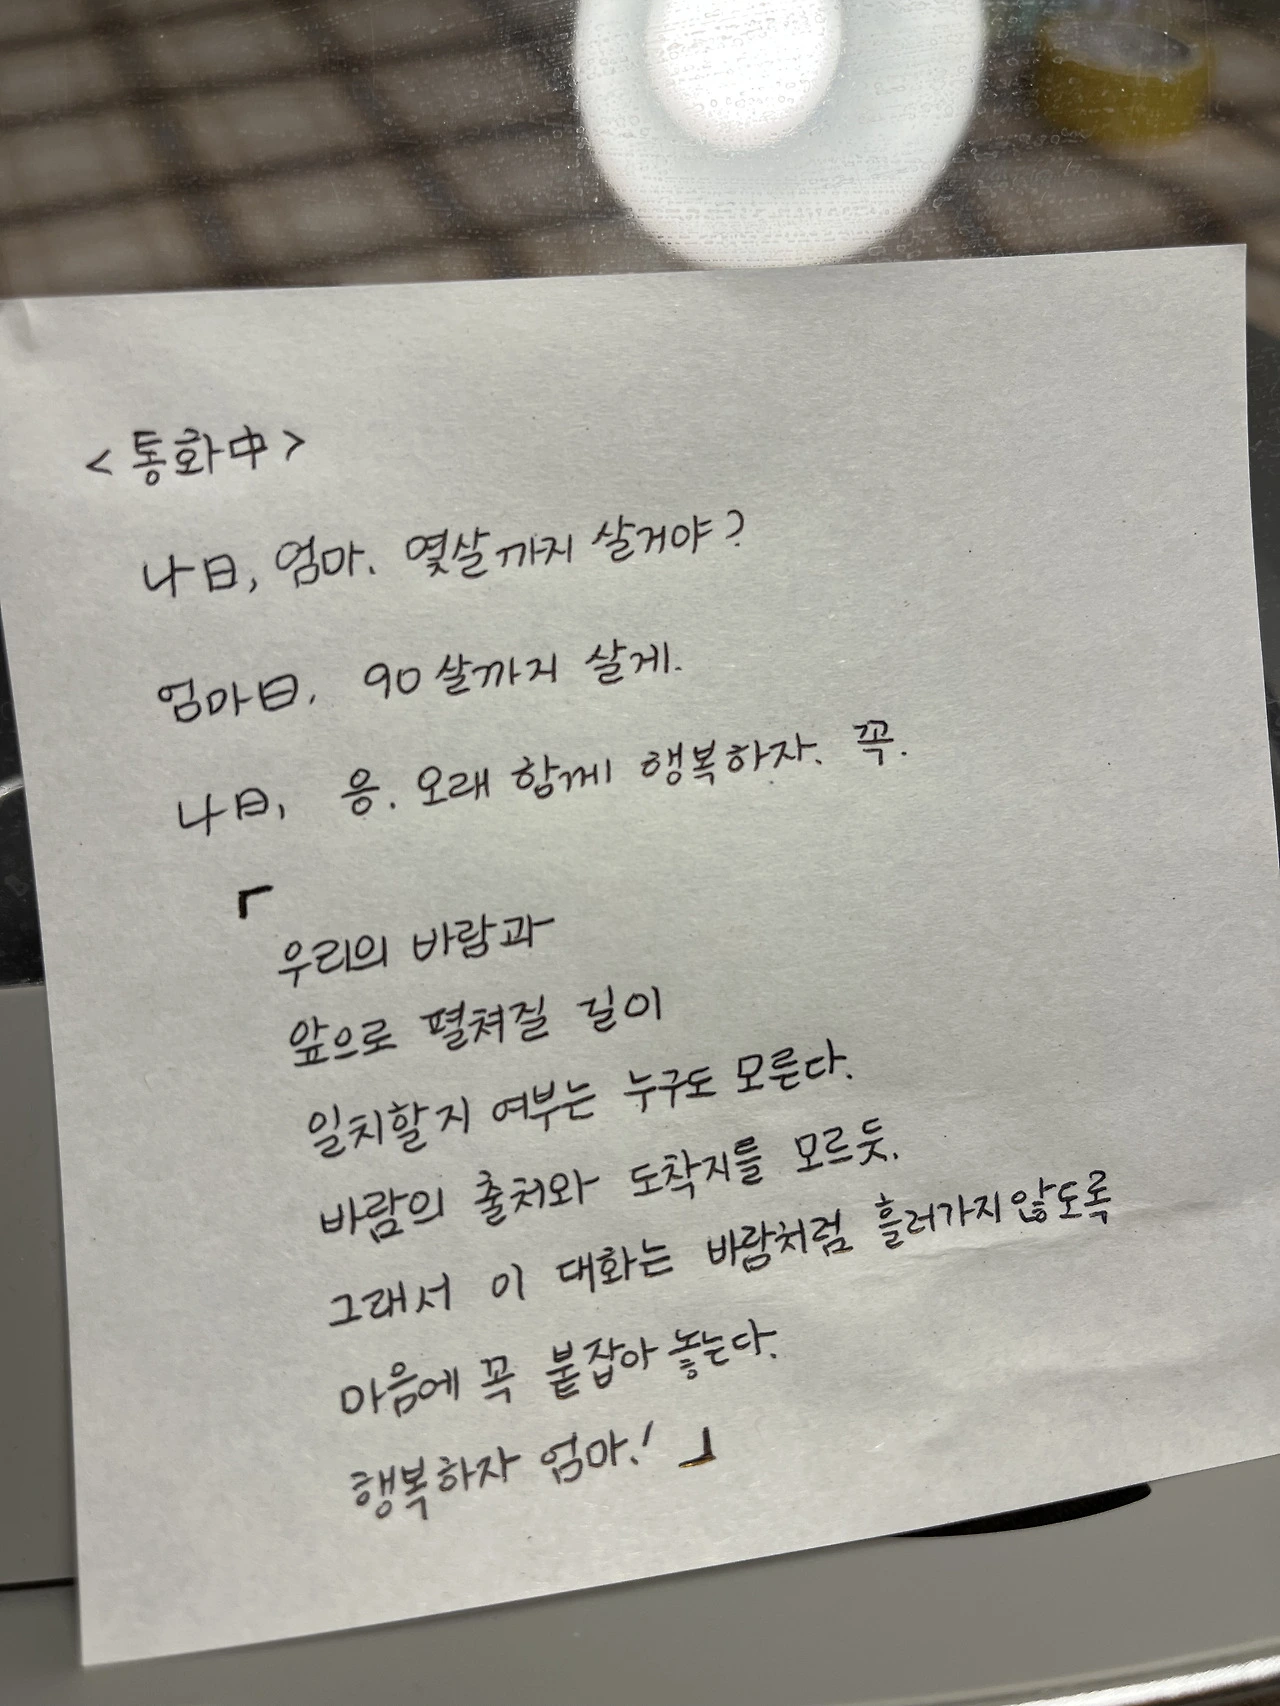 <통화中>
나曰, 엄마. 몇살까지 살거야?
엄마曰. 90살까지 살게.
나曰, 응. 오래 함께 행복하자. 꼭.
「
우리의 바람과
앞으로 펼쳐질 길이
일치할지 여부는 누구도 모른다.
바람의 출처와 도착지를 모르듯.
그래서 이 대화는 바람처럼 흘러가지않도록
마음에 꼭 붙잡아 놓는다.
행복하자 엄마! 」